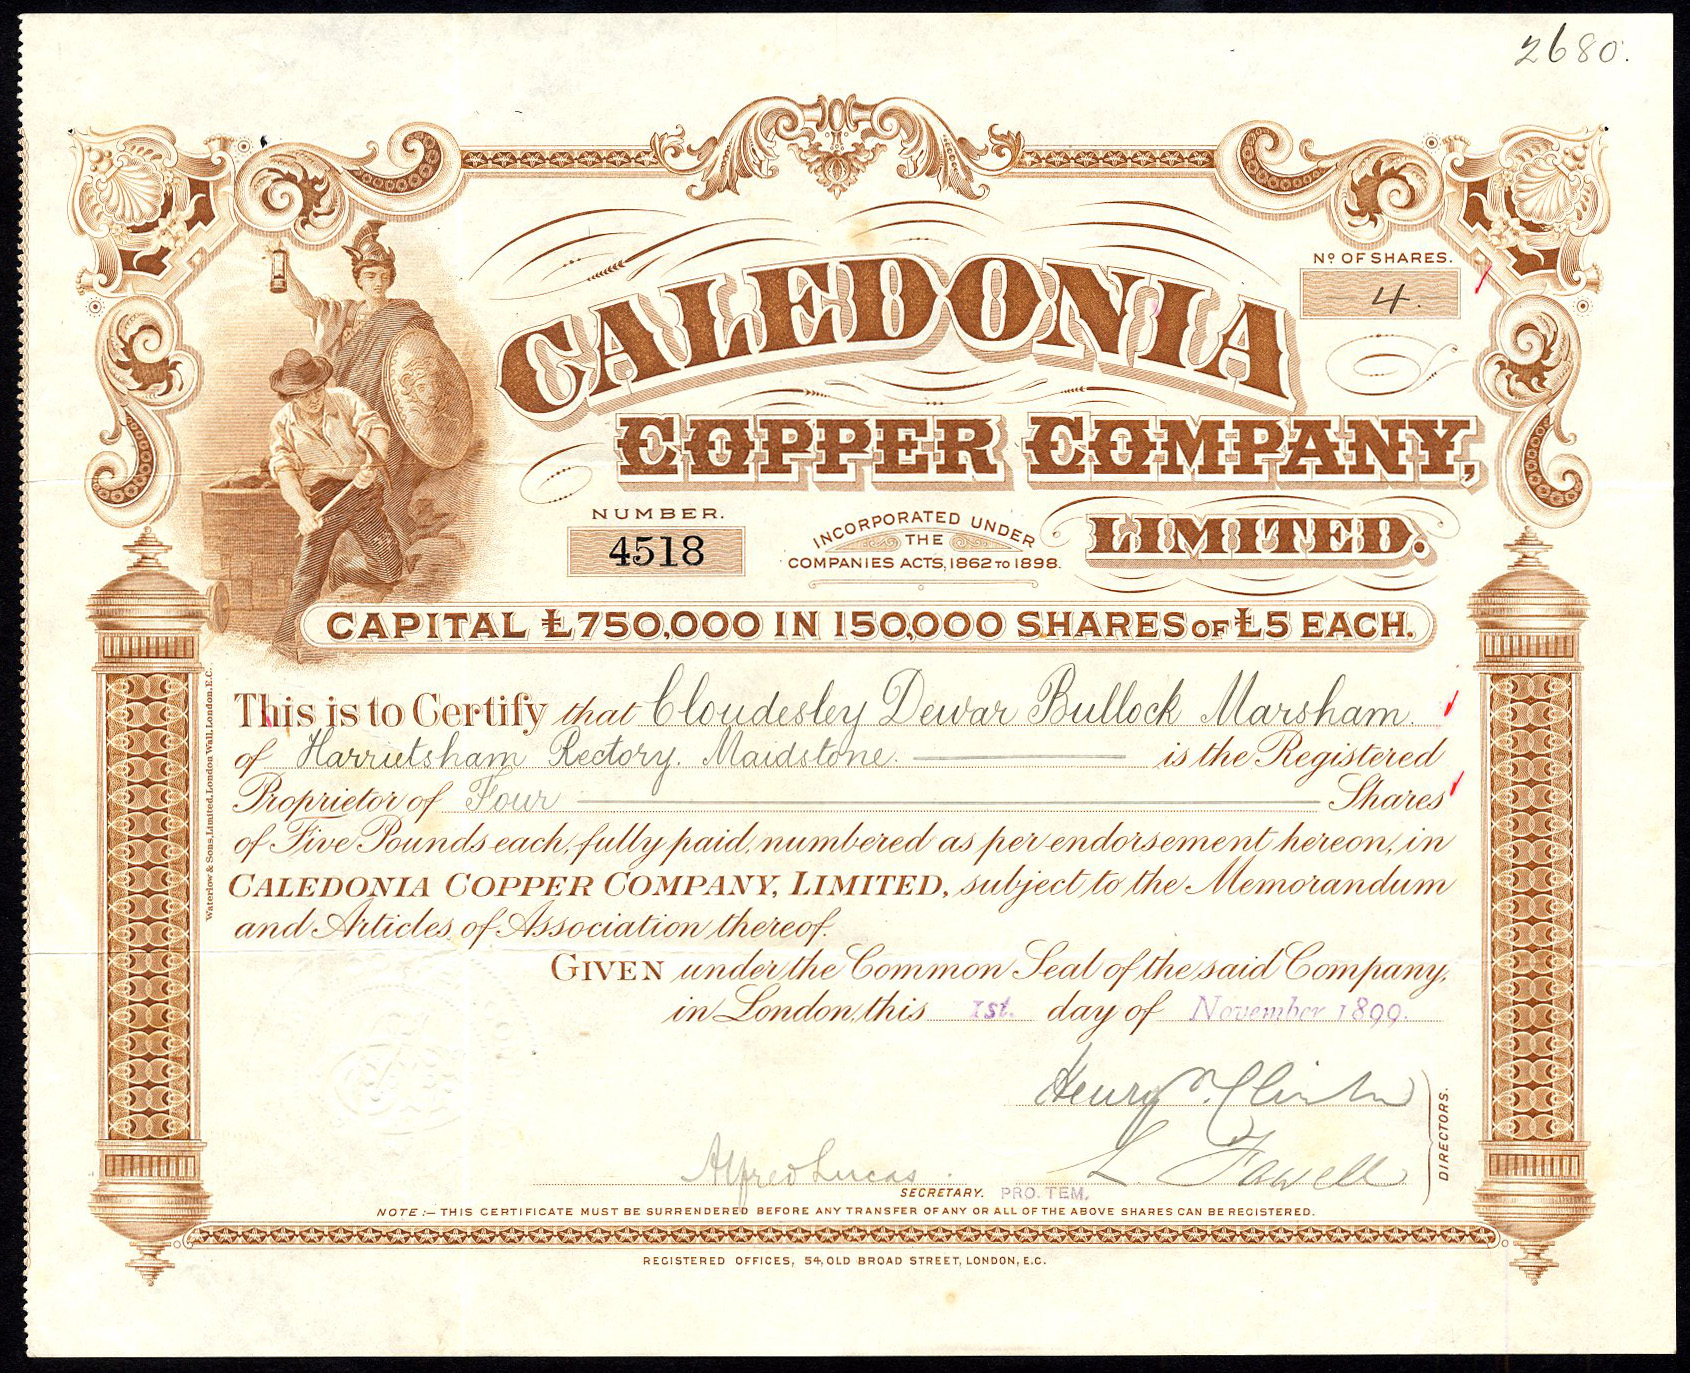 2680.
Nº OF SHARES.
4.
CALEDONIA
COPPER COMPANY,
LIMITED.
NUMBER.
4518
INCORPORATED UNDER
THE
COMPANIES ACTS, 1862 TO 1898.
CAPITAL £750,000 IN 150,000 SHARES OF £5 EACH.
This is to Certify that Cloudesley Dewar Bullock Marsham.
of Harrietsham Rectory. Maidstone. is the Registered
Proprietor of Four Shares
of Five Pounds each, fully paid, numbered as per endorsement hereon, in
CALEDONIA COPPER COMPANY, LIMITED, subject to the Memorandum
and Articles of Association thereof.
GIVEN under the Common Seal of the said Company,
in London, this 1st. day of November 1899.
Henry
L. Fawell
DIRECTORS.
Alfred Lucas.
SECRETARY. PRO. TEM.
NOTE:— THIS CERTIFICATE MUST BE SURRENDERED BEFORE ANY TRANSFER OF ANY OR ALL OF THE ABOVE SHARES CAN BE REGISTERED.
REGISTERED OFFICES, 54, OLD BROAD STREET, LONDON, E.C.
Waterlow & Sons, Limited, London Wall, London, E.C.